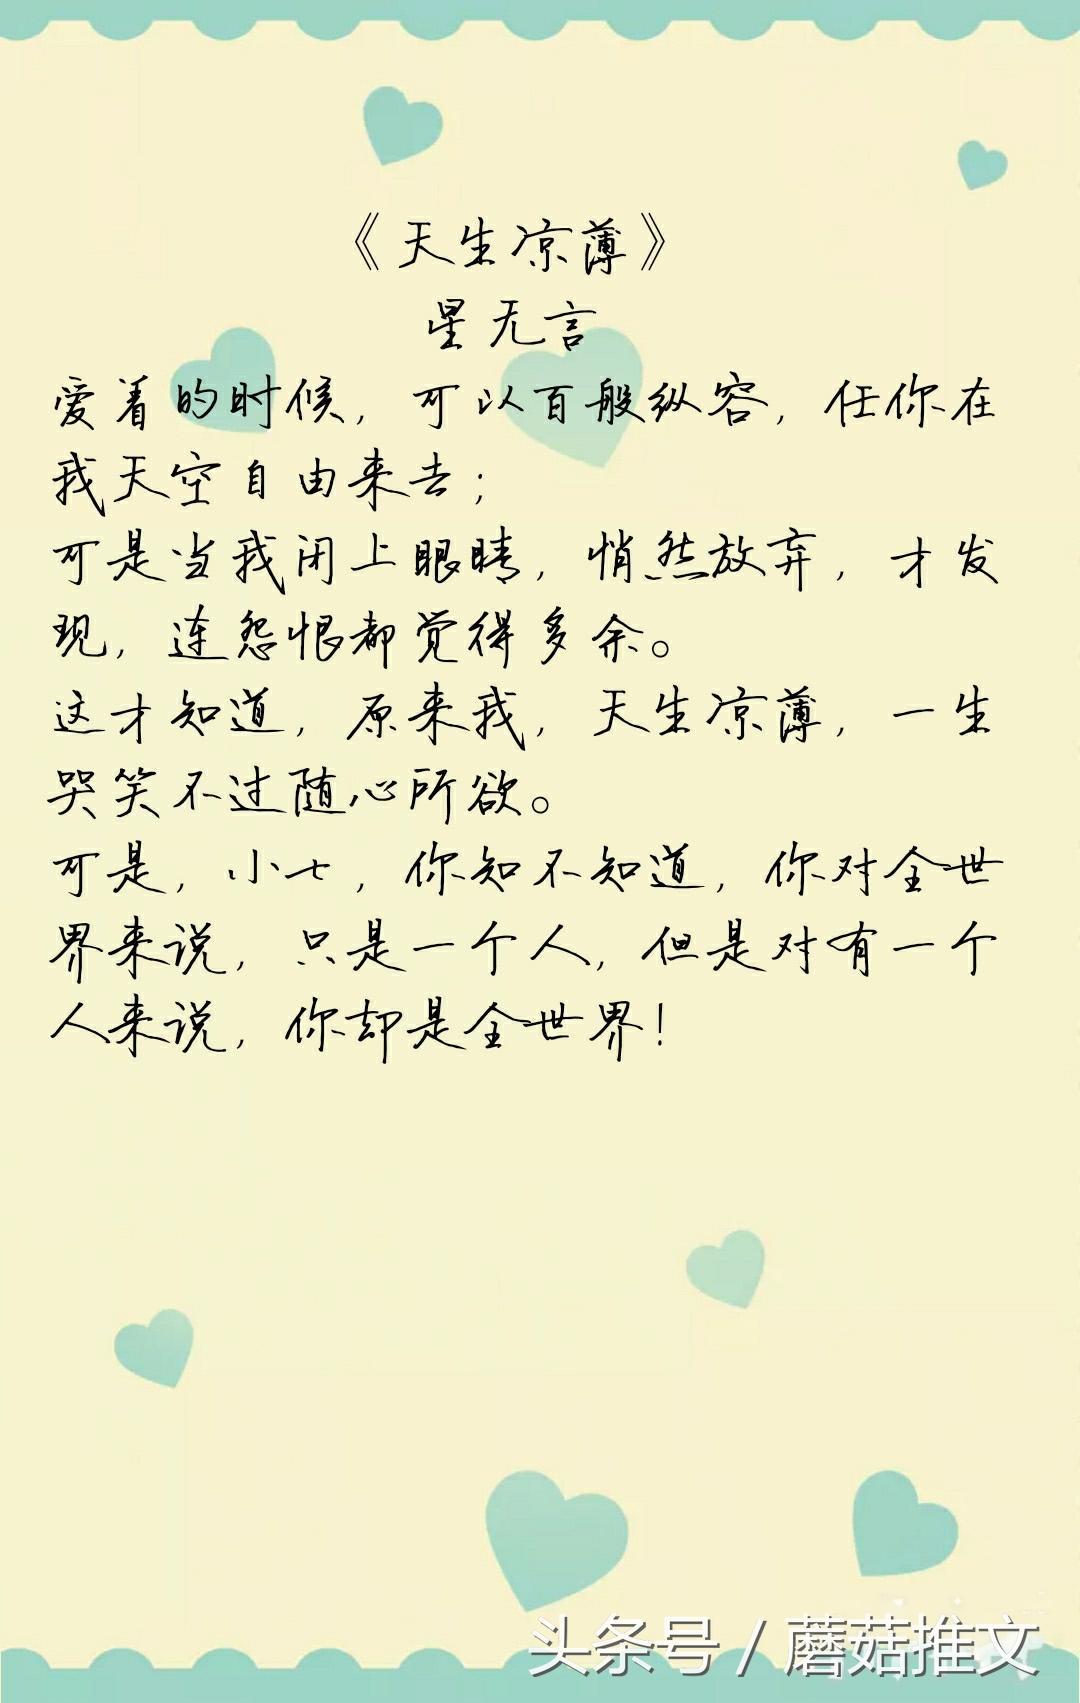 《天生凉薄》
星无言
爱着的时候，可以百般纵容，任你在
我天空自由来去；
可是当我闭上眼睛，悄然放弃，才发
现，连怨恨都觉得多余。
这才知道，原来我，天生凉薄，一生
哭笑不过随心所欲。
可是，小七，你知不知道，你对全世
界来说，只是一个人，但是对有一个
人来说，你却是全世界！
头条号／蘑菇推文